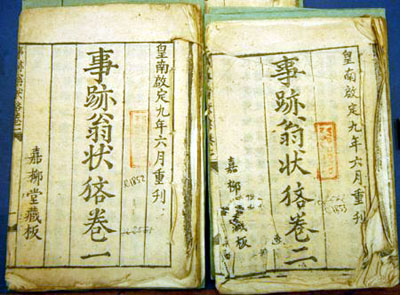 皇南啟定九年六月重刊
事跡翁状𤞼卷一
嘉柳堂藏板
R.1852
皇南啟定九年六月重刊
事跡翁状𤞼卷二
嘉柳堂藏板